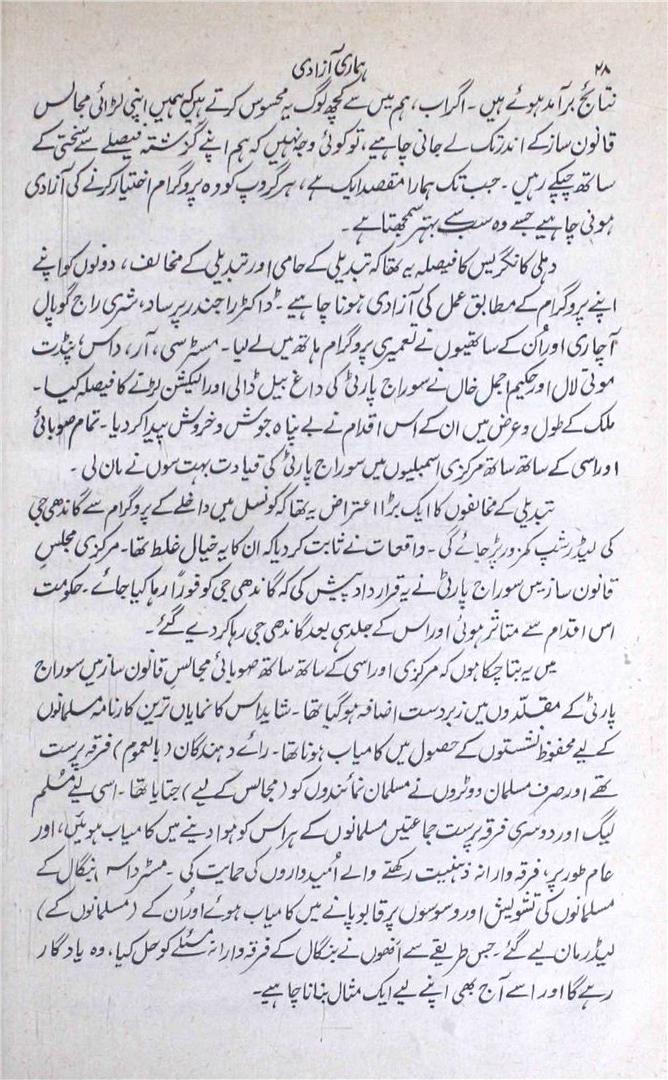 ۲۸
ہماری آزادی
نتائج برآمد ہوئے ہیں۔ اگر اب، ہم میں سے کچھ لوگ یہ محسوس کرتے ہیں کہ ہمیں اپنی لڑائی مجالس
قانون ساز کے اندر تک لے جانی چاہیے، تو کوئی وجہ نہیں کہ ہم اپنے گزشتہ فیصلے سے سختی کے
ساتھ چپکے رہیں۔ جب تک ہمارا مقصد ایک ہے، ہر گروپ کو وہ پروگرام اختیار کرنے کی آزادی
ہونی چاہیے جسے وہ سب سے بہتر سمجھتا ہے۔
دہلی کانگریس کا فیصلہ یہ تھا کہ تبدیلی کے حامی اور تبدیلی کے مخالف، دونوں کو اپنے
اپنے پروگرام کے مطابق عمل کی آزادی ہونا چاہیے۔ ڈاکٹر راجندر پرساد، شری راج گوپال
آچاری اور اُن کے ساتھیوں نے تعمیری پروگرام ہاتھ میں لے لیا۔ مسٹر سی، آر، داس، پنڈت
موتی لال اور حکیم اجمل خاں نے سوراج پارٹی کی داغ بیل ڈالی اور الیکشن لڑنے کا فیصلہ کیا۔
ملک کے طول و عرض میں ان کے اس اقدام نے بے پناہ جوش و خروش پیدا کر دیا۔ تمام صوبائی
اور اسی کے ساتھ ساتھ مرکزی اسمبلیوں میں سوراج پارٹی کی قیادت بہت سوں نے مان لی۔
تبدیلی کے مخالفوں کا ایک بڑا اعتراض یہ تھا کہ کونسل میں داخلے کے پروگرام سے گاندھی جی
کی لیڈرشپ کمزور پڑ جائے گی۔ واقعات نے ثابت کر دیا کہ ان کا یہ خیال غلط تھا۔ مرکزی مجلسِ
قانون ساز میں سوراج پارٹی نے یہ قرارداد پیش کی کہ گاندھی جی کو فوراً رہا کیا جائے۔ حکومت
اس اقدام سے متاثر ہوئی اور اس کے جلد ہی بعد گاندھی جی رہا کر دیے گئے۔
میں یہ بتا چکا ہوں کہ مرکزی اور اسی کے ساتھ ساتھ صوبائی مجالس قانون ساز میں سوراج
پارٹی کے مقلدوں میں زبردست اضافہ ہو گیا تھا۔ شاید اس کا نمایاں ترین کارنامہ مسلمانوں
کے لیے محفوظ نشستوں کے حصول میں کامیاب ہونا تھا۔ رائے دہندگان (بالعموم) فرقہ پرست
تھے اور صرف مسلمان ووٹروں نے مسلمان نمائندوں کو (مجالس کے لیے) جتایا تھا۔ اسی لیے مُسلم
لیگ اور دوسری فرقہ پرست جماعتیں مسلمانوں کے ہراس کو ہوا دینے میں کامیاب ہوئیں، اور
عام طور پر، فرقہ وارانہ ذہنیت رکھنے والے اُمیدواروں کی حمایت کی۔ مسٹر داس، بنگال کے
مسلمانوں کی تشویش اور وسوسوں پر قابو پانے میں کامیاب ہوئے اور اُن کے (مسلمانوں کے)
لیڈر مان لیے گئے۔ جس طریقے سے اُنھوں نے بنگال کے فرقہ وارانہ مسئلے کو حل کیا، وہ یادگار
رہے گا اور اسے آج بھی اپنے لیے ایک مثال بنانا چاہیے۔